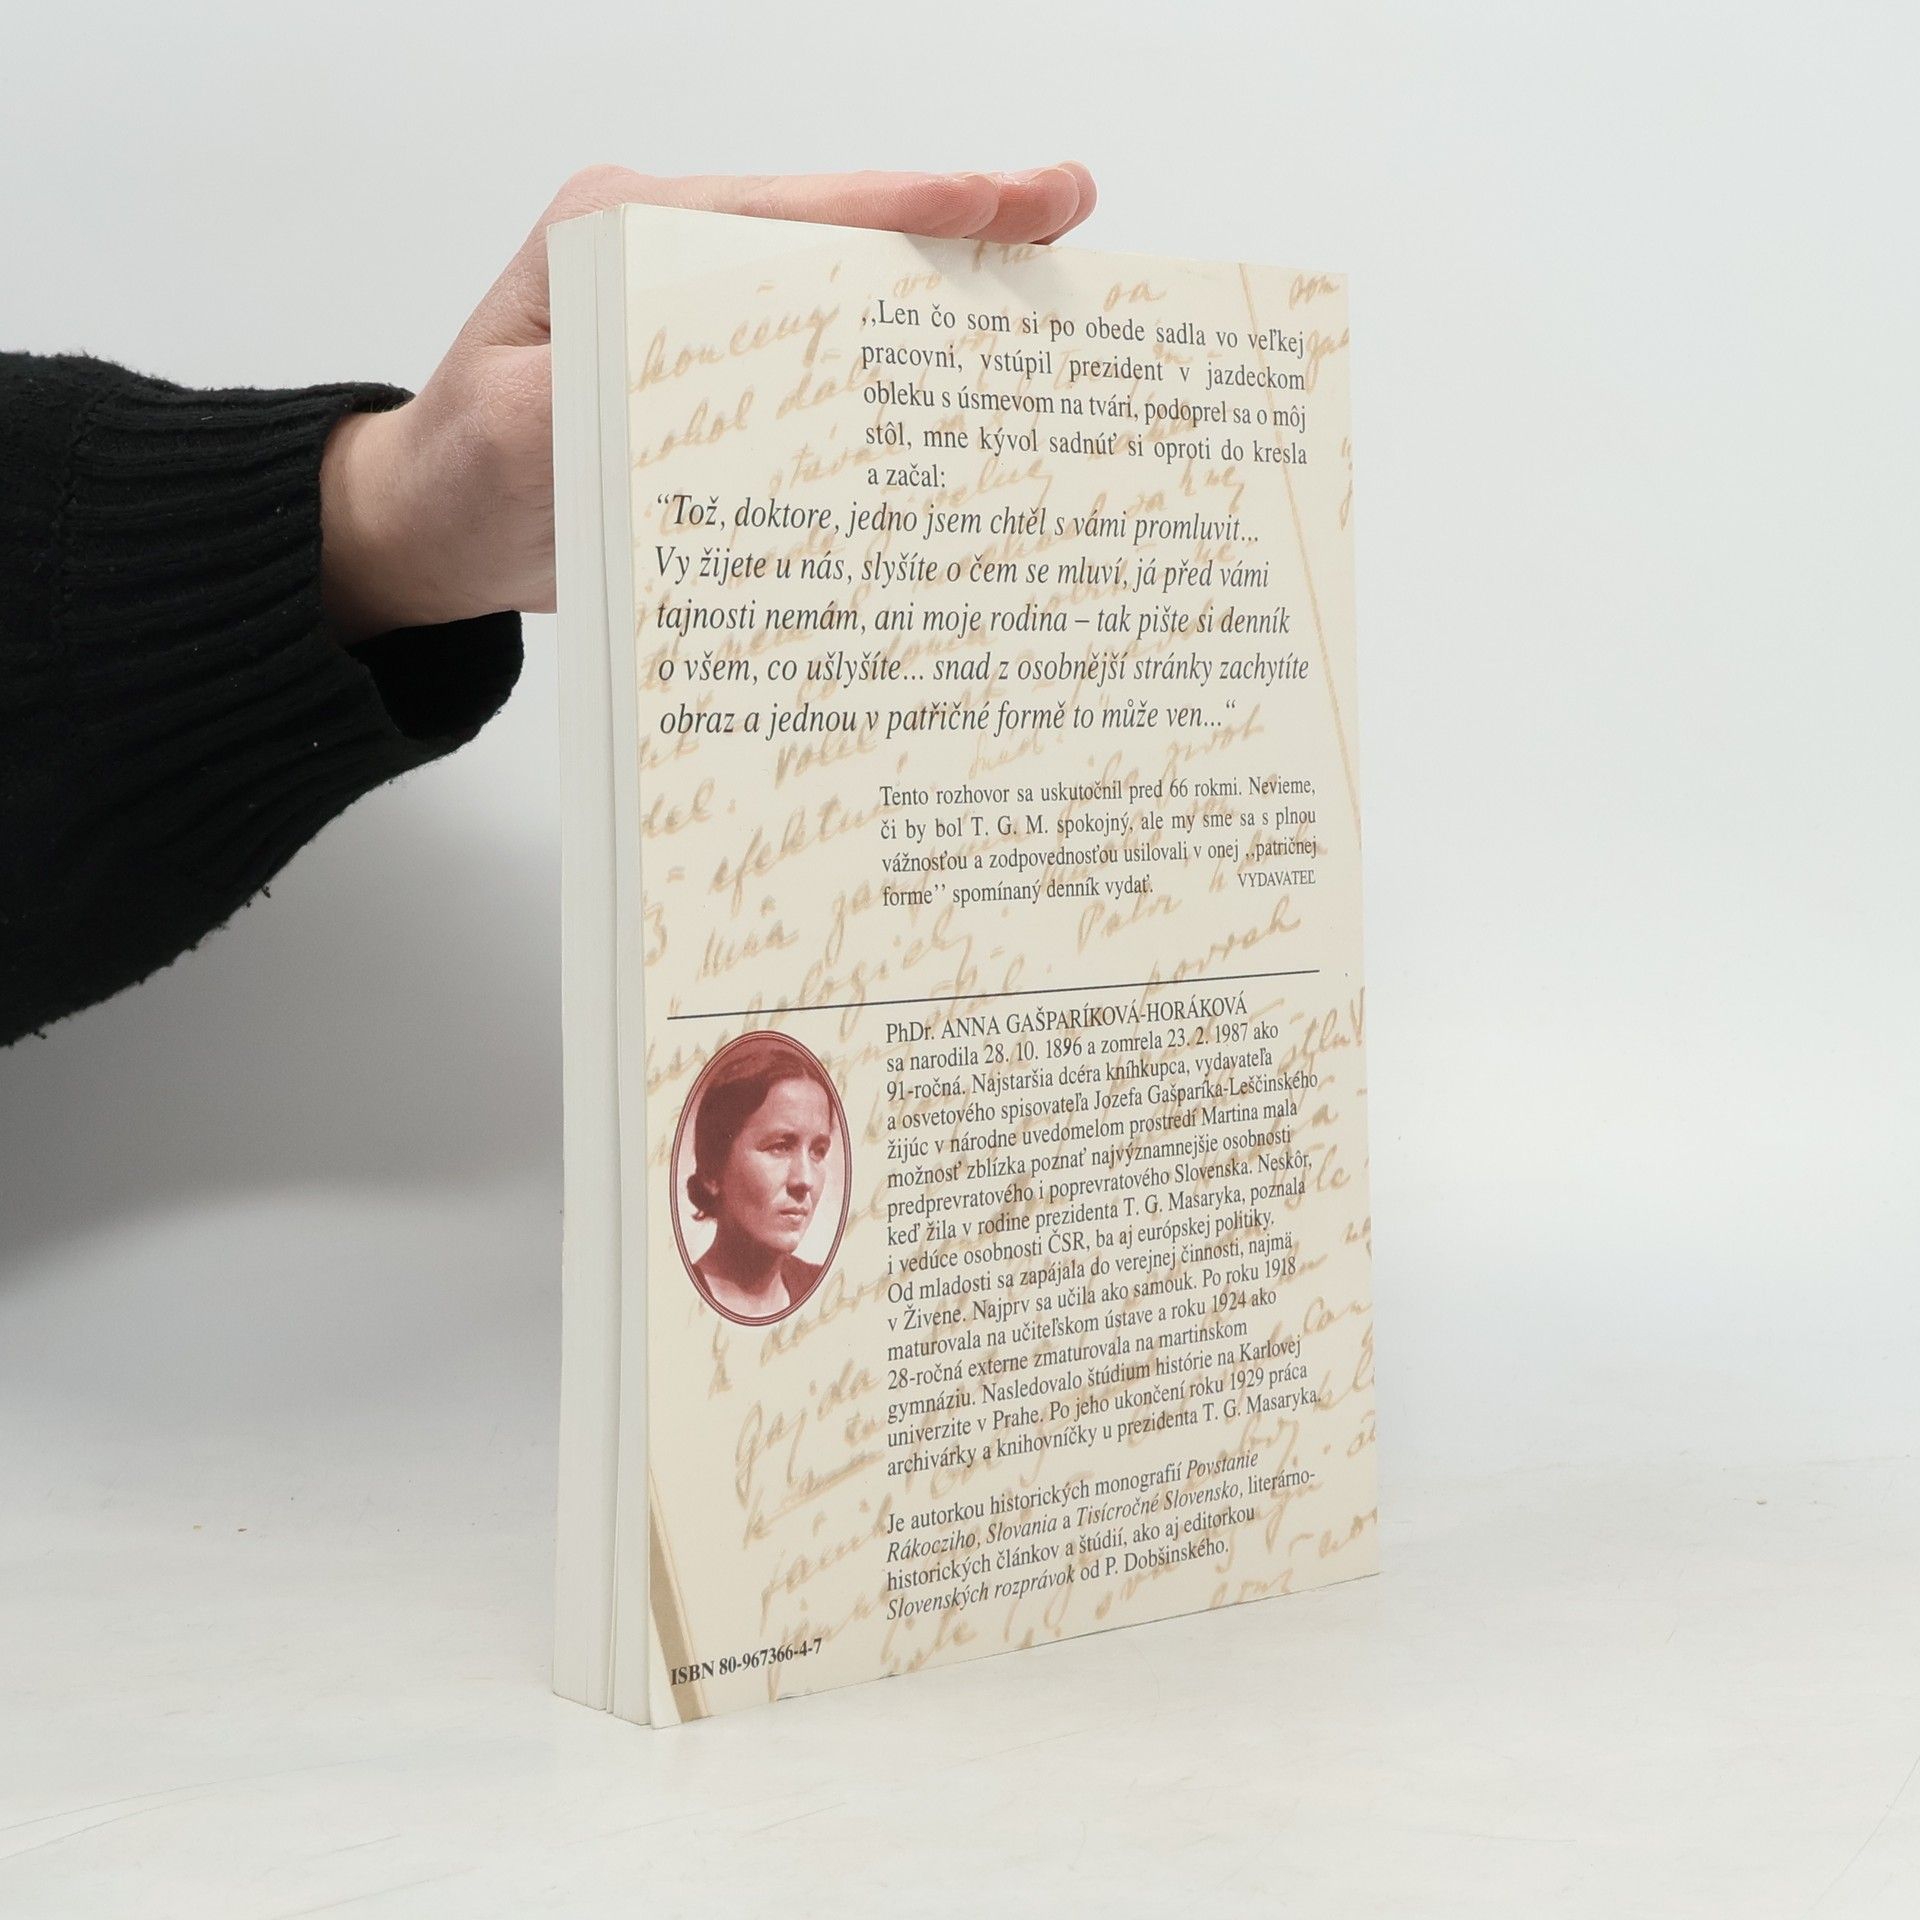 ,,Len čo som si po obede sadla vo veľkej
pracovni, vstúpil prezident v jazdeckom
obleku s úsmevom na tvári, podoprel sa o môj
stôl, mne kývol sadnúť si oproti do kresla
a začal:
“Tož, doktore, jedno jsem chtěl s vámi promluvit...
Vy žijete u nás, slyšíte o čem se mluví, já před vámi
tajnosti nemám, ani moje rodina – tak pište si denník
o všem, co ušlyšíte... snad z osobnější stránky zachytíte
obraz a jednou v patřičné formě to může ven...“
Tento rozhovor sa uskutočnil pred 66 rokmi. Nevieme,
či by bol T. G. M. spokojný, ale my sme sa s plnou
vážnosťou a zodpovednosťou usilovali v onej ,,patričnej
forme’’ spomínaný denník vydať. VYDAVATEĽ
PhDr. ANNA GAŠPARÍKOVÁ-HORÁKOVÁ
sa narodila 28. 10. 1896 a zomrela 23. 2. 1987 ako
91-ročná. Najstaršia dcéra kníhkupca, vydavateľa
a osvetového spisovateľa Jozefa Gašparíka-Leščinského
žijúc v národne uvedomelom prostredí Martina mala
možnosť zblízka poznať najvýznamnejšie osobnosti
predprevratového i poprevratového Slovenska. Neskôr,
keď žila v rodine prezidenta T. G. Masaryka, poznala
i vedúce osobnosti ČSR, ba aj európskej politiky.
Od mladosti sa zapájala do verejnej činnosti, najmä
v Živene. Najprv sa učila ako samouk. Po roku 1918
maturovala na učiteľskom ústave a roku 1924 ako
28-ročná externe zmaturovala na martinskom
gymnáziu. Nasledovalo štúdium histórie na Karlovej
univerzite v Prahe. Po jeho ukončení roku 1929 práca
archivárky a knihovníčky u prezidenta T. G. Masaryka.
Je autorkou historických monografií Povstanie
Rákocziho, Slovania a Tisícročné Slovensko, literárno-
historických článkov a štúdií, ako aj editorkou
Slovenských rozprávok od P. Dobšinského.
ISBN 80-967366-4-7